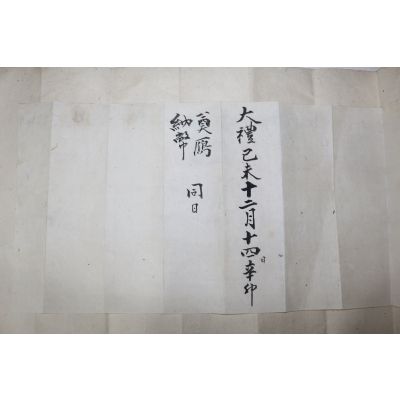 大禮己未十二月十四日辛卯
奠鴈
納幣
同日